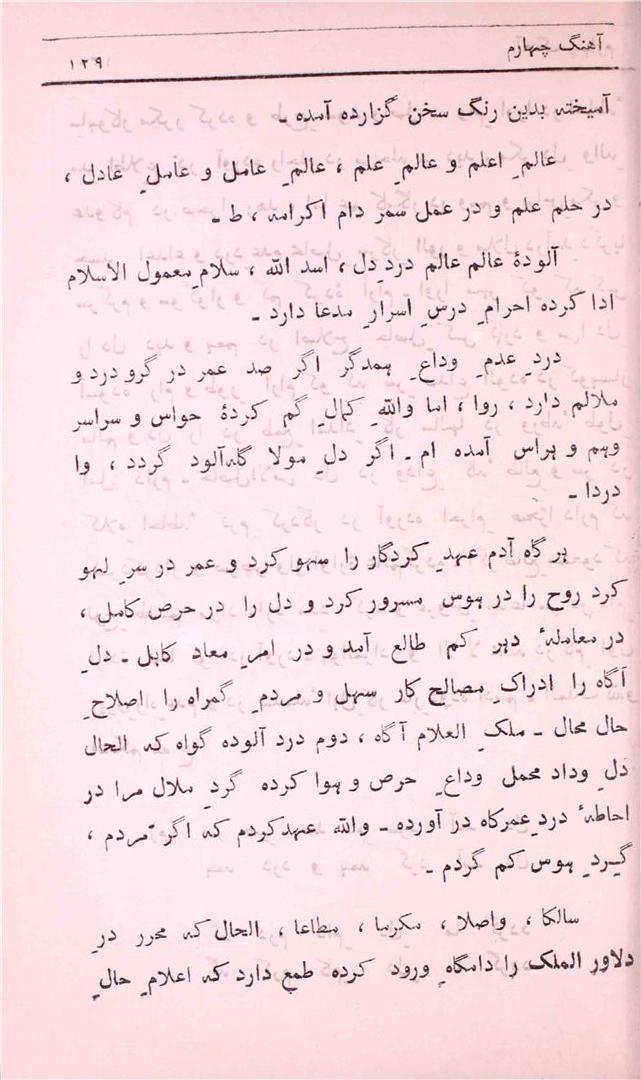 آهنگ چهارم
۱۲۹
آمیخته بدین رنگ سخن گزارده آمده ـ
عالمِ اعلم و عالمِ علم ، عالمِ عامل و عاملِ عادل ،
در حلم علم و در عمل سمر دام اکرامه ، ط ـ
آلودهٔ عالم عالم دردِ دل ، اسد الله ، سلامِ معمول الاسلام
ادا کرده احرامِ درسِ اسرارِ مدعا دارد ـ
دردِ عدمِ وداعِ همدگر اگر صد عمر در گرو درد و
ملالم دارد ، روا ، اما واللهِ کمالِ گم کردهٔ حواس و سراسر
وهم و هراس آمده ام ـ اگر دلِ مولا گله‌آلود گردد ، وا
دردا ـ
هر گاه آدم عهدِ کردگار را سهو کرد و عمر در سرِ لهو
کرد روح را در هوس مسرور کرد و دل را در حرص کامل ،
در معاملهٔ دهر کم طالع آمد و در امرِ معاد کاهل ـ دلِ
آگاه را ادراکِ مصالحِ کار سهل و مردمِ گمراه را اصلاحِ
حال محال ـ ملکِ العلام آگاه ، دوم درد آلوده گواه که الحال
دلِ وداد محمل وداعِ حرص و هوا کرده گردِ ملال مرا در
احاطهٔ دردِ عمرکاه در آورده ـ والله عهد کردم که اگر مردم ،
گردِ هوس کم گردم ـ
سالکا ، واصلا ، مکرما ، مطاعا ، الحال که محرر در
دلاور الملک را دامگاهِ ورود کرده طمع دارد که اعلامِ حالِ